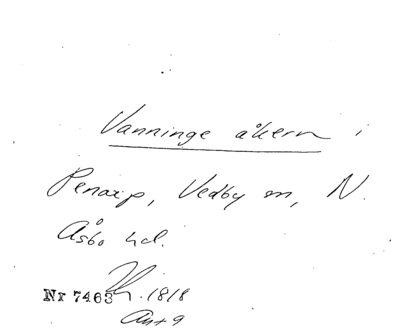 Vanninge åkern i
Penarp, Vedby sn, N.
Åsbo hd.
Nr 7463 1818